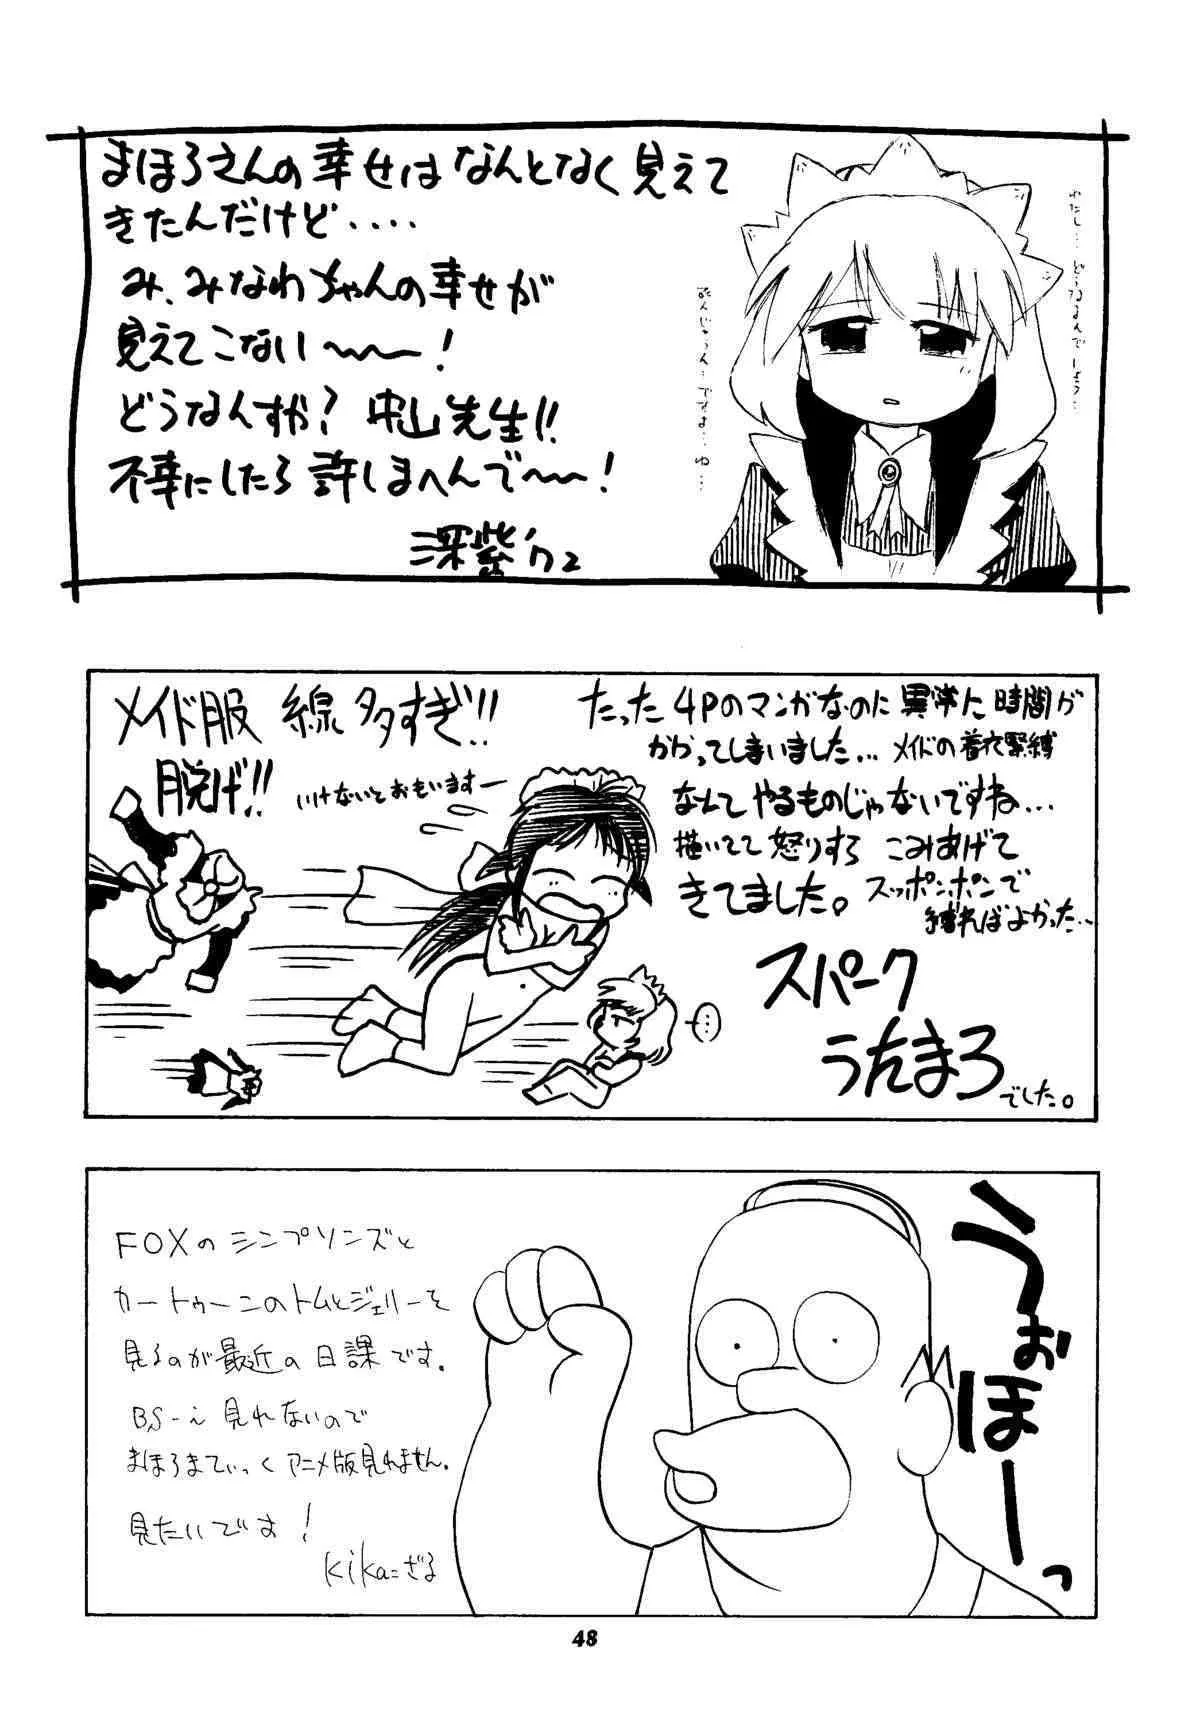 まほろさんの幸せはなんとなく見えて
きたんだけど‥‥
み、みなわちゃんの幸せが
見えてこない〜〜!
どうなんすか? 中山先生!!
不幸にしたら許しまへんで〜〜!
深紫
わたし…どうなるんでしょう…
メイド服 線多すぎ!!
脱げ!!
いけないとおもいますー
たった4Pのマンガなのに異常に時間が
かかってしまいました… メイドの着衣緊縛
なんてやるものじゃないですね…
描いてて怒りすら こみあげて
きてました。スッポンポンで
縛ればよかった…
スパーク
うたまろ
でした。
…
FOXのシンプソンズと
カートゥーンのトムとジェリーを
見るのが最近の日課です。
BSーi 見れないので
まほろまてぃっくアニメ版見れません。
見たいです!
kika=ざる
うぉほーっ
48